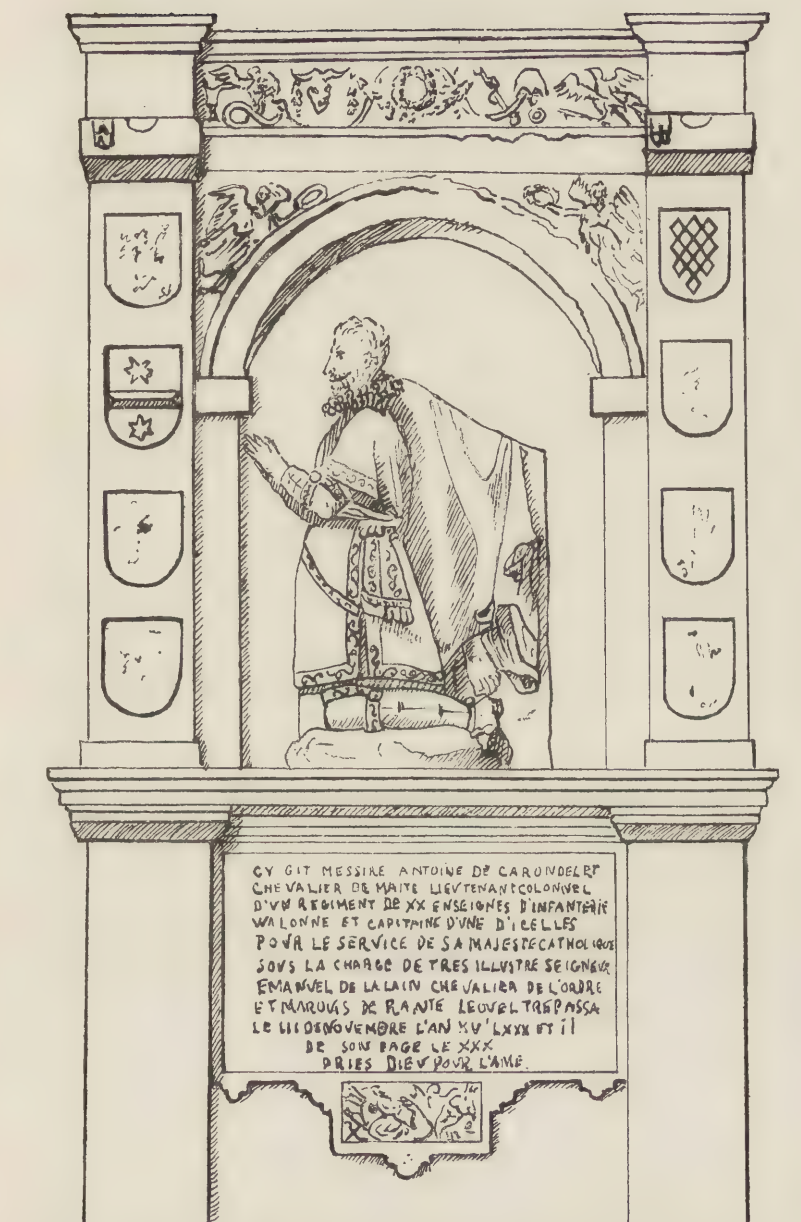 CY GIT MESSIRE ANTOINE DE CARONDELET
CHEVALIER DE MAITE LIEVTENANT COLONNEL
D'VN REGIMENT DE XX ENSEIGNES D'INFANTERIE
WALONNE ET CAPITAINE D'VNE D'ICELLES
POVR LE SERVICE DE SA MAJESTE CATHOLIQUE
SOVS LA CHARGE DE TRES ILLVSTRE SEIGNEVR
EMANVEL DE LALAIN CHEVALIER DE L'ORDRE
ET MARQVIS DE RANTE LEQVEL TREPASSA
LE III DE NOVEMBRE L'AN XV' LXXX ET II
DE SON EAGE LE XXX
PRIES DIEV POVR L'AME.